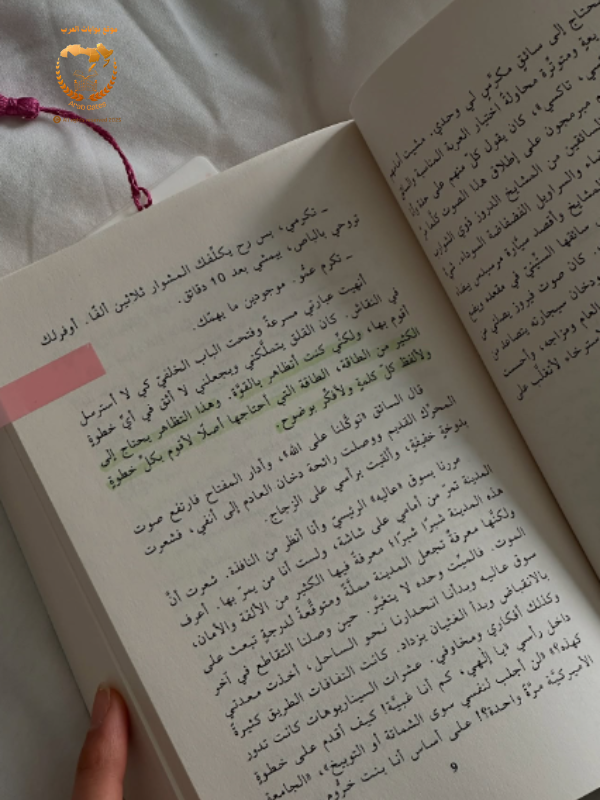 ـ تكرمي، بس رح يكلّفك المشوار ثلاثين ألفًا. أوفرلك
تروحي بالباص، بيمشي بعد 10 دقائق.
ـ تكرم عمّو. موجودين ما يهمّك.
أنهيت عبارتي مسرعةً وفتحت الباب الخلفي كي لا أسترسل
في النقاش. كان القلق يتملّكني ويجعلني لا أثق في أيّ خطوةٍ
أقوم بها، ولكنّي كنت أتظاهر بالقوّة. وهذا التظاهر يحتاج إلى
الكثير من الطاقة، الطاقة التي أحتاجها أصلًا لأقوم بكلّ خطوةٍ
ولألفظ كلّ كلمةٍ ولأفكّر بوضوح.
قال السائق «توكّلنا على الله»، وأدار المفتاح فارتفع صوت
المحرّك القديم ووصلت رائحة دخان العادم إلى أنفي، فشعرت
بدوخةٍ خفيفةٍ، وألقيت برأسي على الزجاج.
مررنا بسوق «عاليه» الرئيسيّ وأنا أنظر من النافذة. شعرت أنّ
المدينة تمرّ من أمامي على شاشة، ولست أنا من يمرّ بها. أعرف
هذه المدينة شبرًا شبرًا؛ معرفةً فيها الكثير من الألفة والأمان،
ولكنّها معرفةٌ تجعل المدينة مملّةً ومتوقّعةً لدرجةٍ تبعث على
الموت. فالميّت وحده لا يتغيّر. حين وصلنا التقاطع في آخر
سوق عاليه وبدأنا انحدارنا نحو الساحل، أخذت معدتي
بالانقباض وبدأ الغثيان يزداد. كانت التفافات الطريق كثيرةً
وكذلك أفكاري ومخاوفي. عشرات السيناريوهات كانت تدور
داخل رأسي «يا إلهي، كم أنا غبيّة! كيف أقدم على خطوةٍ
كهذه؟» «لن أجلب لنفسي سوى الشماتة أو التوبيخ»، «الجامعة
الأميركيّة مرّةً واحدة؟! على أساس أنا بنت
9
حتاج إلى سائقٍ مكرّسٍ لي وحدي. مشيت
ومتوتّرة محاولةً اختيار العربة المناسبة
تاكسي»، كان يقول كلّ منهم على
مبرمجون على إطلاق هذا الصوت كلّما
السائقين من المشايخ الدروز ذوي الشوارب
والسراويل الفضفاضة السوداء.
المشايخ وأقصد سيّارة مرسيدس
سائقها السُنّيّ في مقعده
كان صوت فيروز يصلني من
ودخان سيجارته يتصاعد من
العام ومزاجه، وأحسست
على